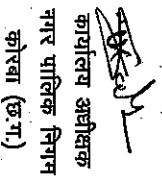 कार्यालय अधीक्षक
नगर पालिक निगम
कोरबा (छ.ग)